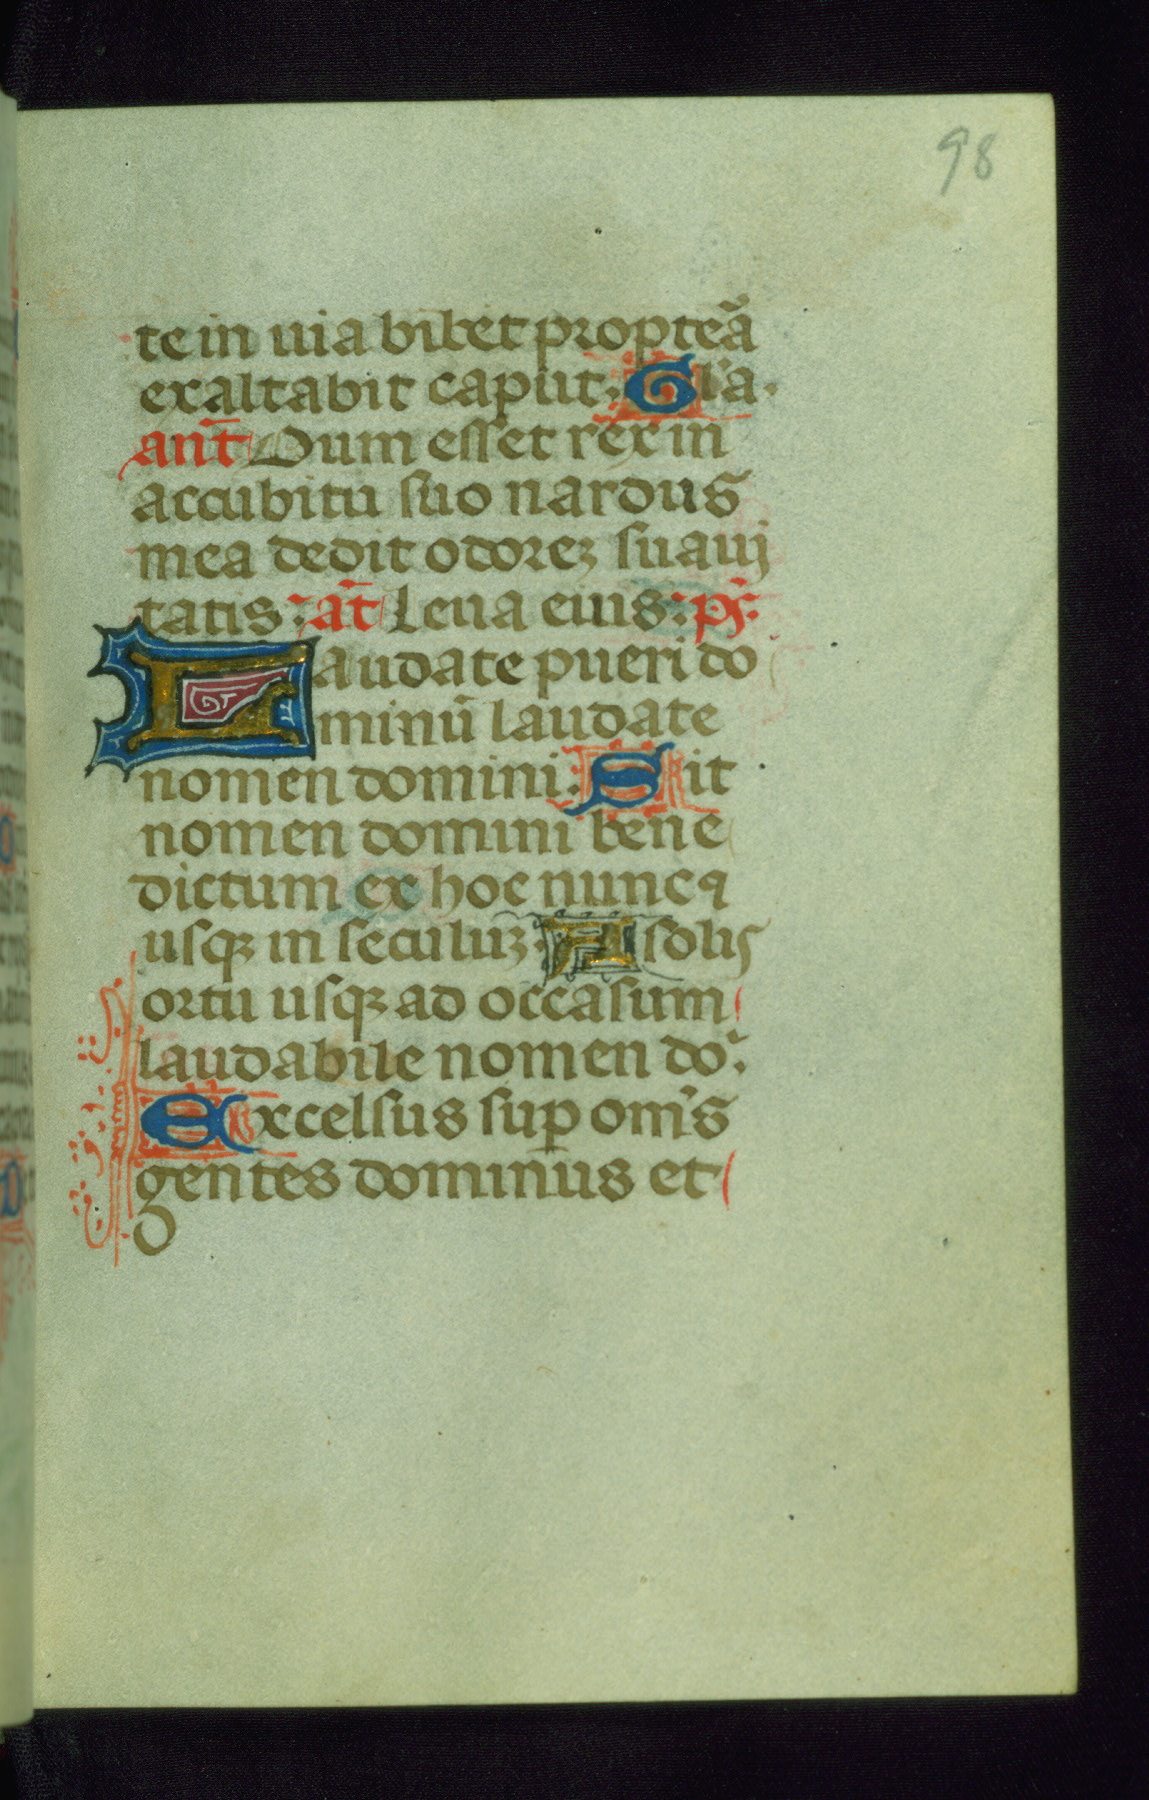 98
te in uia bibet propteā
exaltabit caput. Gl'a.
ant̄ Dum esset rex in
accubitu suo nardus
mea dedit odoreꝫ suaui
tatis: at̄ Leua eius: ps̄:
Laudate pueri do
minū laudate
nomen domini. Sit
nomen domini bene
dictum ex hoc nunc ⁊
usqꝫ in seculuꝫ: A solis
ortu usqꝫ ad occasum
laudabile nomen do:
Excelsus suꝑ om̄s
gentes dominus et